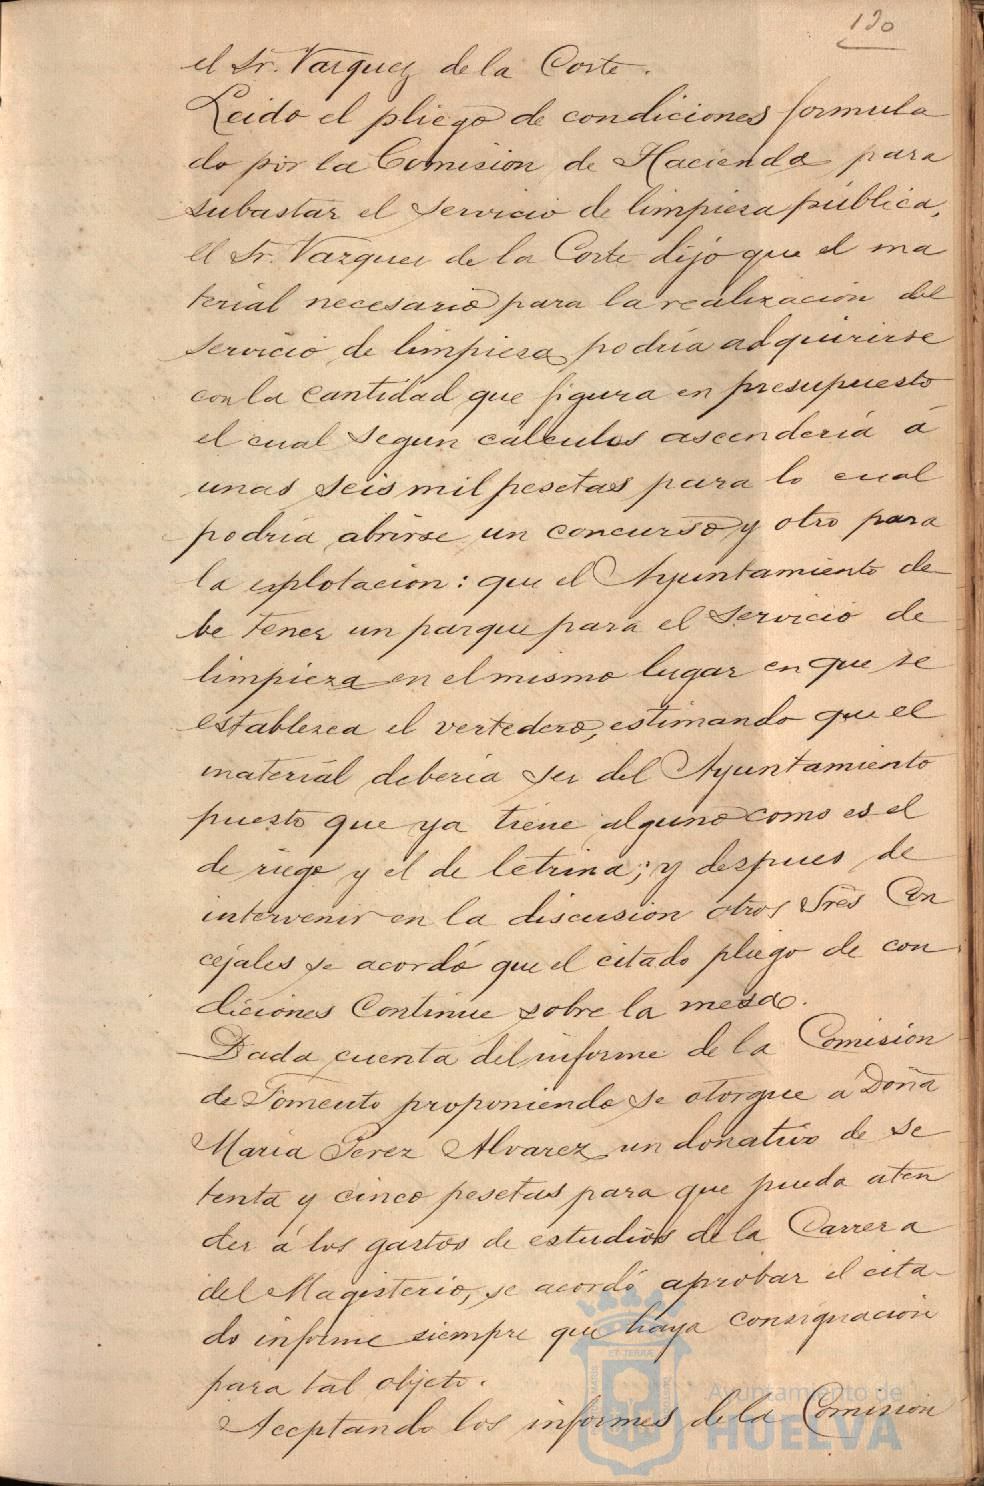 120
el Sr. Vazquez de la Corte.
Leido el pliego de condiciones formula
do por la Comision de Hacienda para
subastar el servicio de limpieza pública,
el Sr. Vazquez de la Corte dijo que el ma
terial necesario para la realizacion del
servicio de limpieza podría adquirirse
con la cantidad que figura en presupuesto
el cual segun calculos ascendería á
unas seis mil pesetas para lo cual
podría abrirse un concurso y otro para
la esplotacion: que el Ayuntamiento de
be tener un parque para el servicio de
limpieza en el mismo lugar en que se
establezca el vertedero, estimando que el
material debería ser del Ayuntamiento
puesto que ya tiene alguno como es el
de riego y el de letrina; y despues de
intervenir en la discusion otros Sres Con
cejales se acordó que el citado pliego de con
diciones continue sobre la mesa.
Dada cuenta del informe de la Comisión
de Fomento proponiendo se otorgue a Doña
María Perez Alvarez un donativo de se
tenta y cinco pesetas para que pueda aten
der á los gastos de estudios de la Carrera
del Magisterio, se acordó aprobar el cita-
do informe siempre que haya consignacion
para tal objeto.
Aceptando los informes de la Comision
Ayuntamiento de
HUELVA